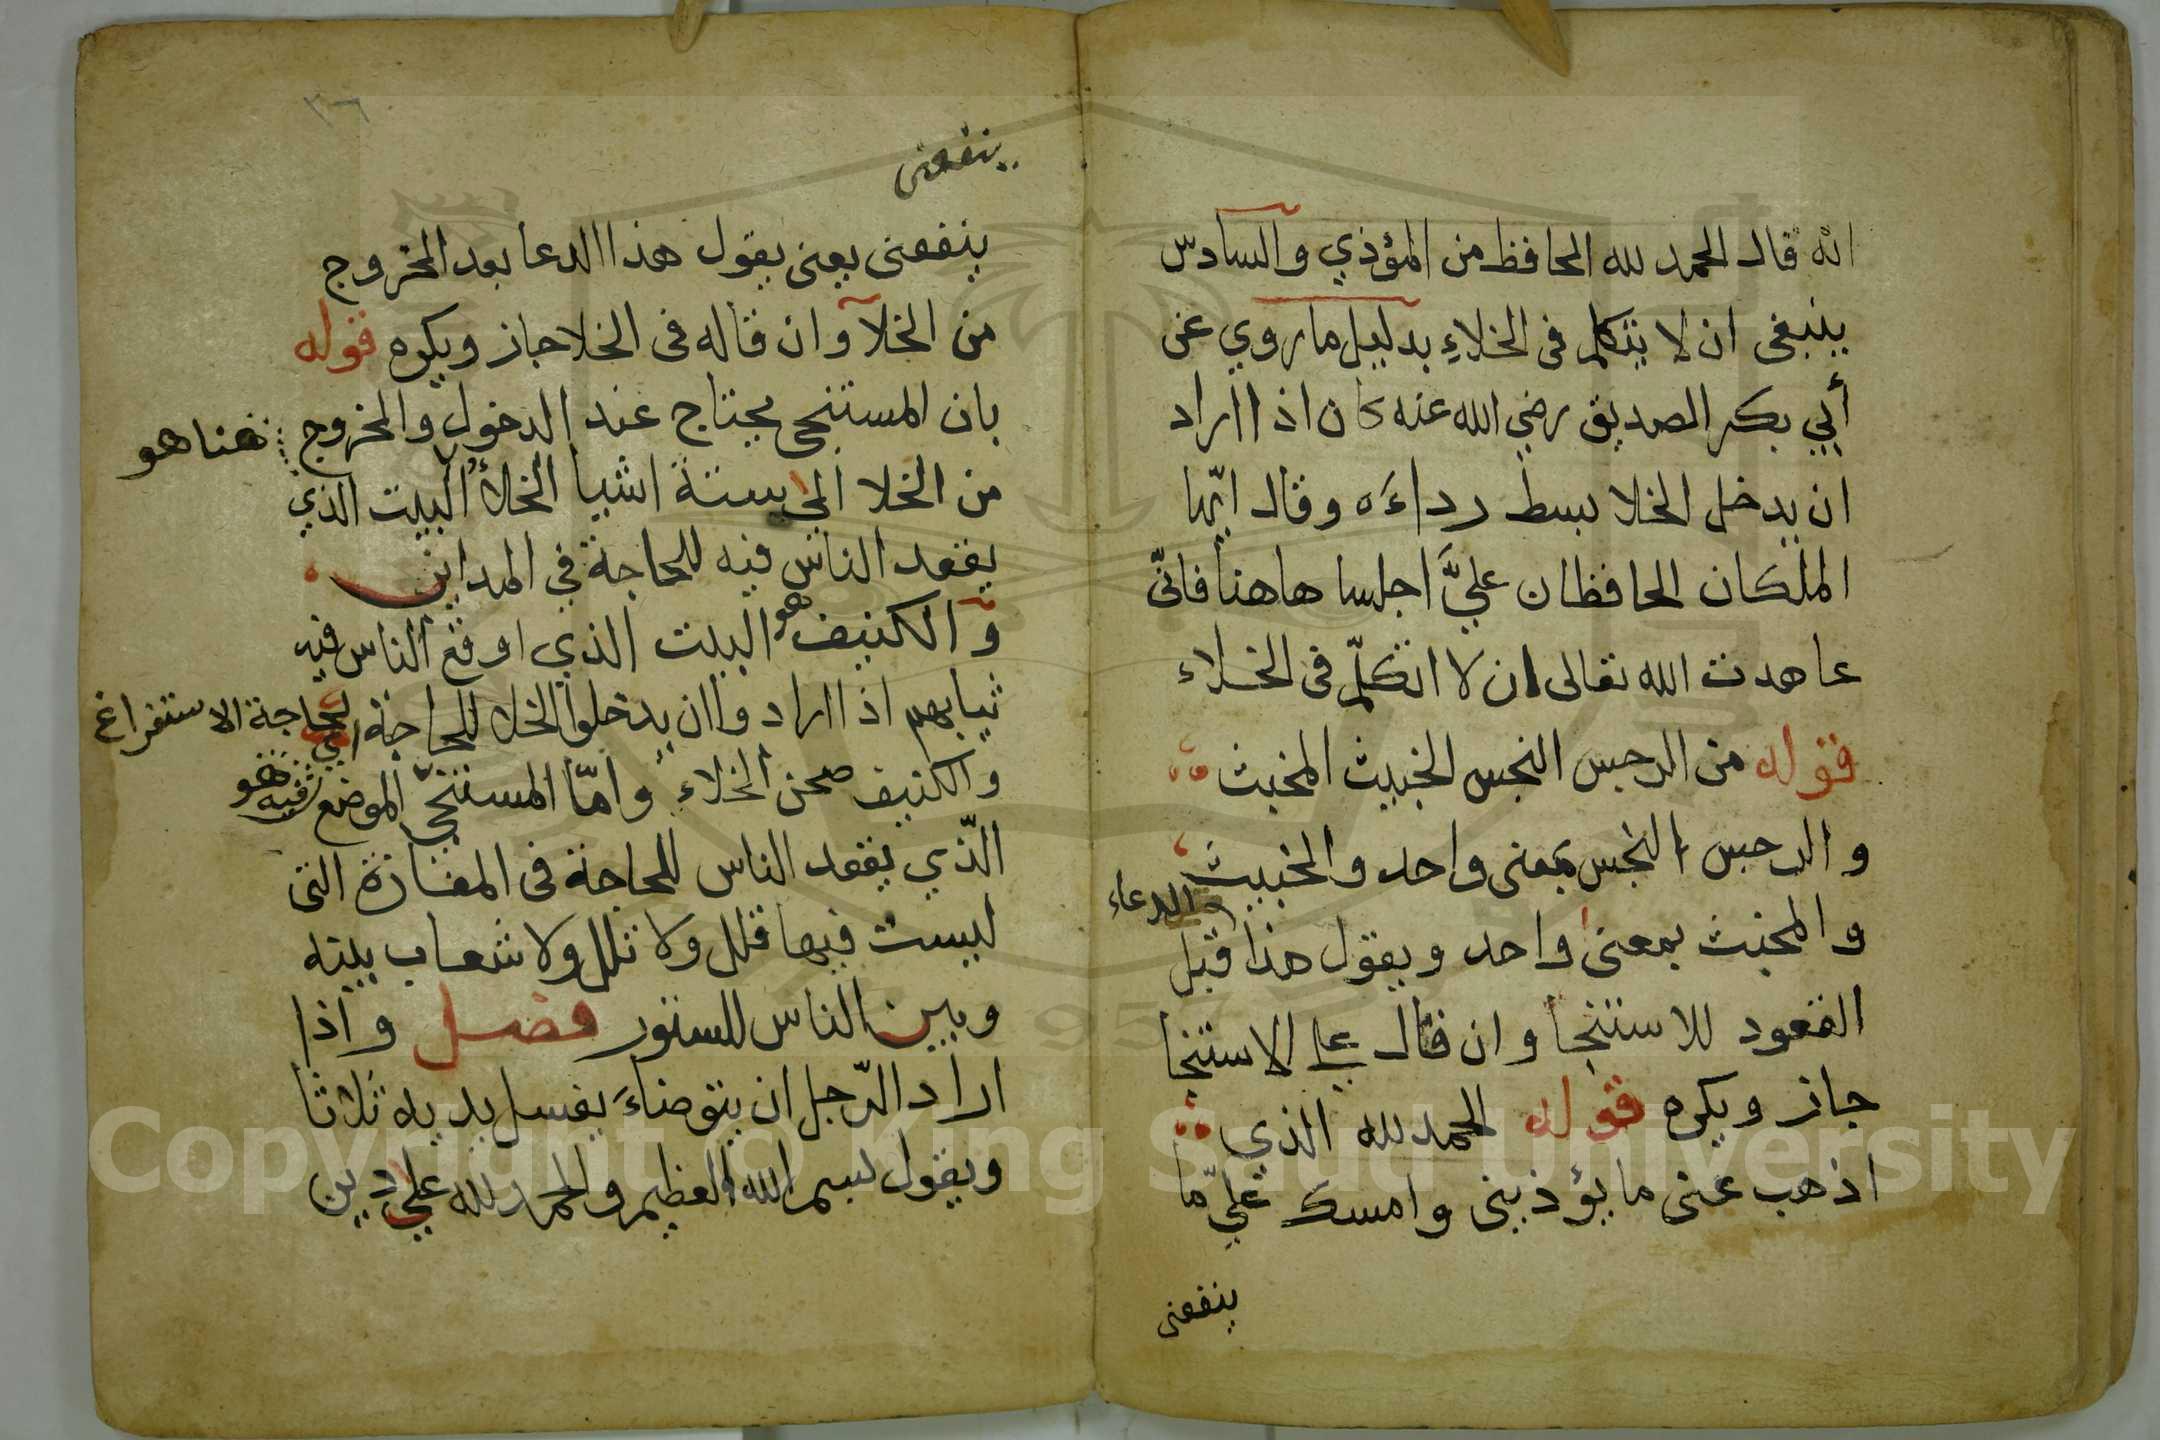 انه قال الحمد لله الحافظ من المؤذي والسادس
ينبغى ان لا يتكلم فى الخلاءِ بدليل ما روي عن
أبي بكر الصديق رضي الله عنه كان اذا اراد
ان يدخل الخلا بسط رداءَه وقال ايّها
الملكان الحافظان عليَّ اجلسا هاهنا فانّى
عاهدت الله تعالى ان لا اتكلّم فى الخلاء
قوله من الرجس النجس الخبيث المخبث
والرجس النجس بمعنى واحد والخبيث
والمخبث بمعنى واحد ويقول هذا الدعاء قبل
القعود للاستنجا وان قال على الاستنجا
جاز ويكره قوله الحمد لله الذي
اذهب عنى ما يؤذينى وامسك عليّ ما
ينفعنى
٣٦
ينفعنى
ينفعنى يعنى يقول هذا الدعا بعد الخروج
من الخلآ وان قاله فى الخلا جاز ويكره قوله
بان المستنجى يحتاج عند الدخول والخروج
هنا هو
من الخلا الى ستة اشيا الخلاُ البيت الذي
يقعد الناس فيه للحاجة في المداين
والكنيف هو البيت الذي اوقع الناس فيه
ثيابهم اذا ارادوا ان يدخلوا الخلا للحاجة اي لحاجة الاستفراغ
والكنيف صحن الخلاء وامّا المستنجى الموضع
فيه هو
الّذي يقعد الناس للحاجة فى المفازة التى
ليست فيها قلل ولا تلل ولا شعاب بينه
وبين الناس للستور فصل واذا
اراد الرّجل ان يتوضاءَ يغسل يديه ثلاثا
ويقول بسم الله العظيم والحمد لله على دين
Copyright © King Saud University